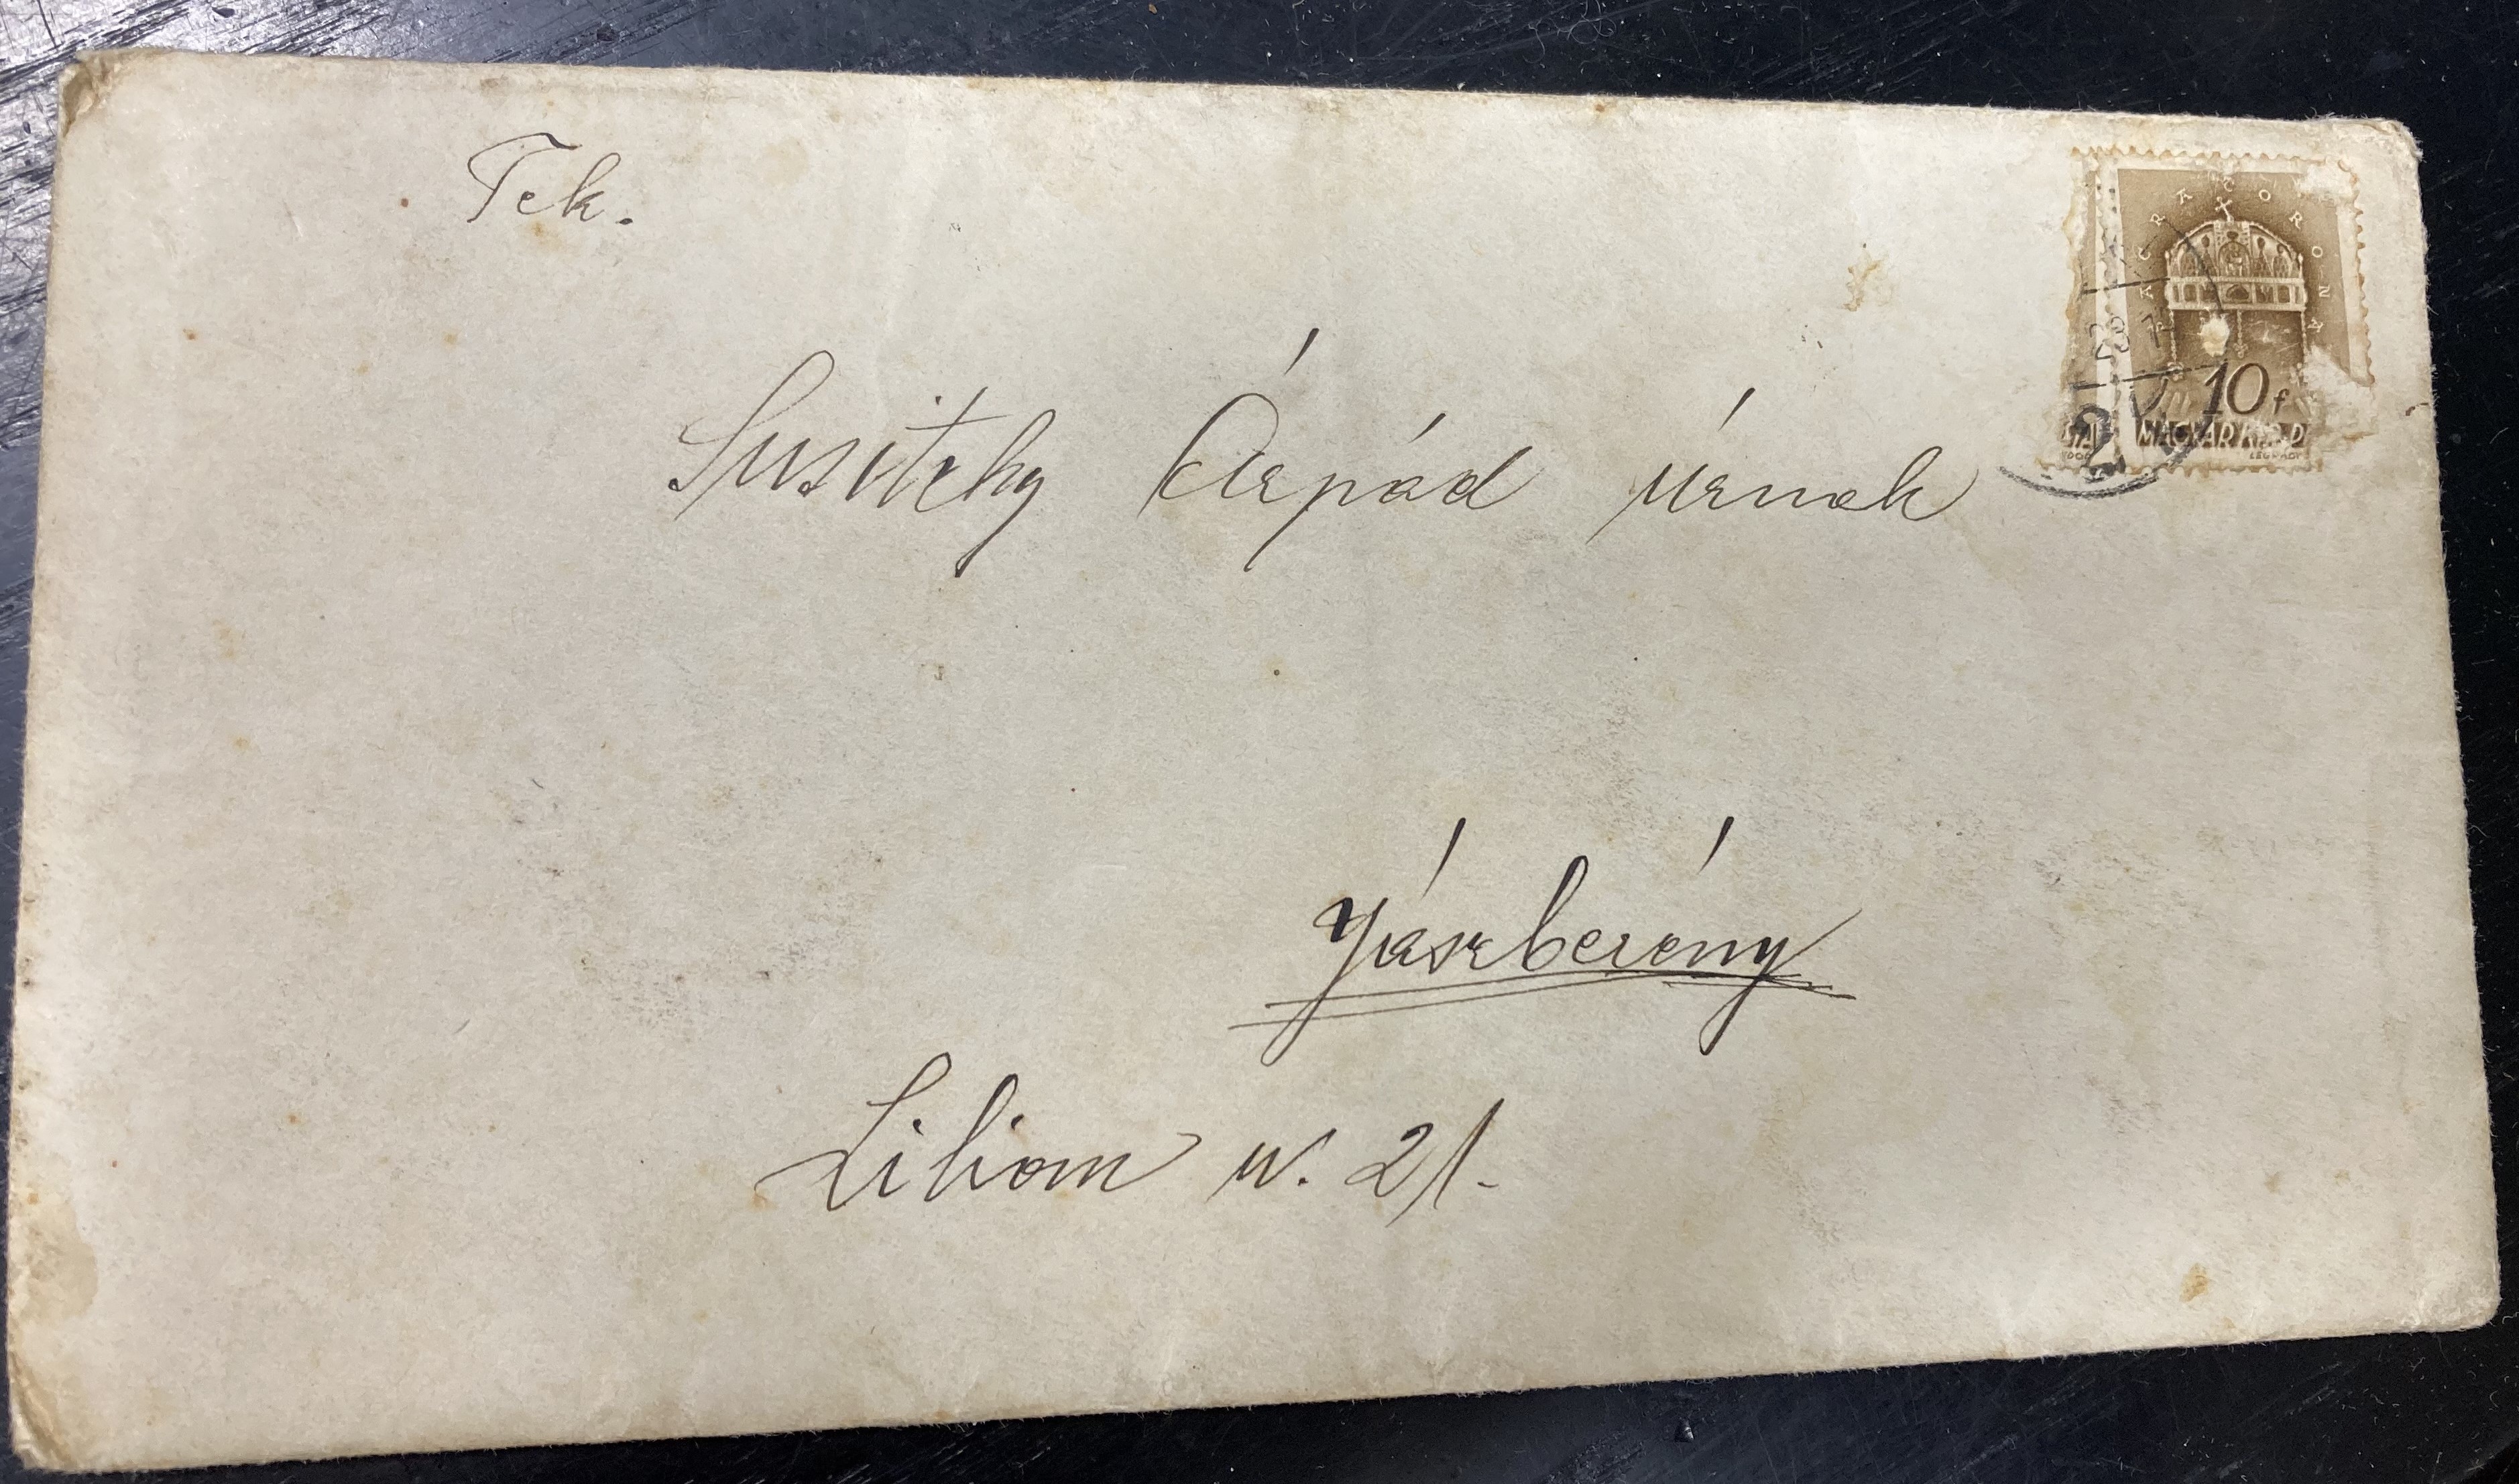 Tek.
Susitzky Árpád úrnak
Jászberény
Liliom u. 21.
SACRA CORONA
10 f
MAGYAR KIR. P
LÉGRÁDY
STA
28